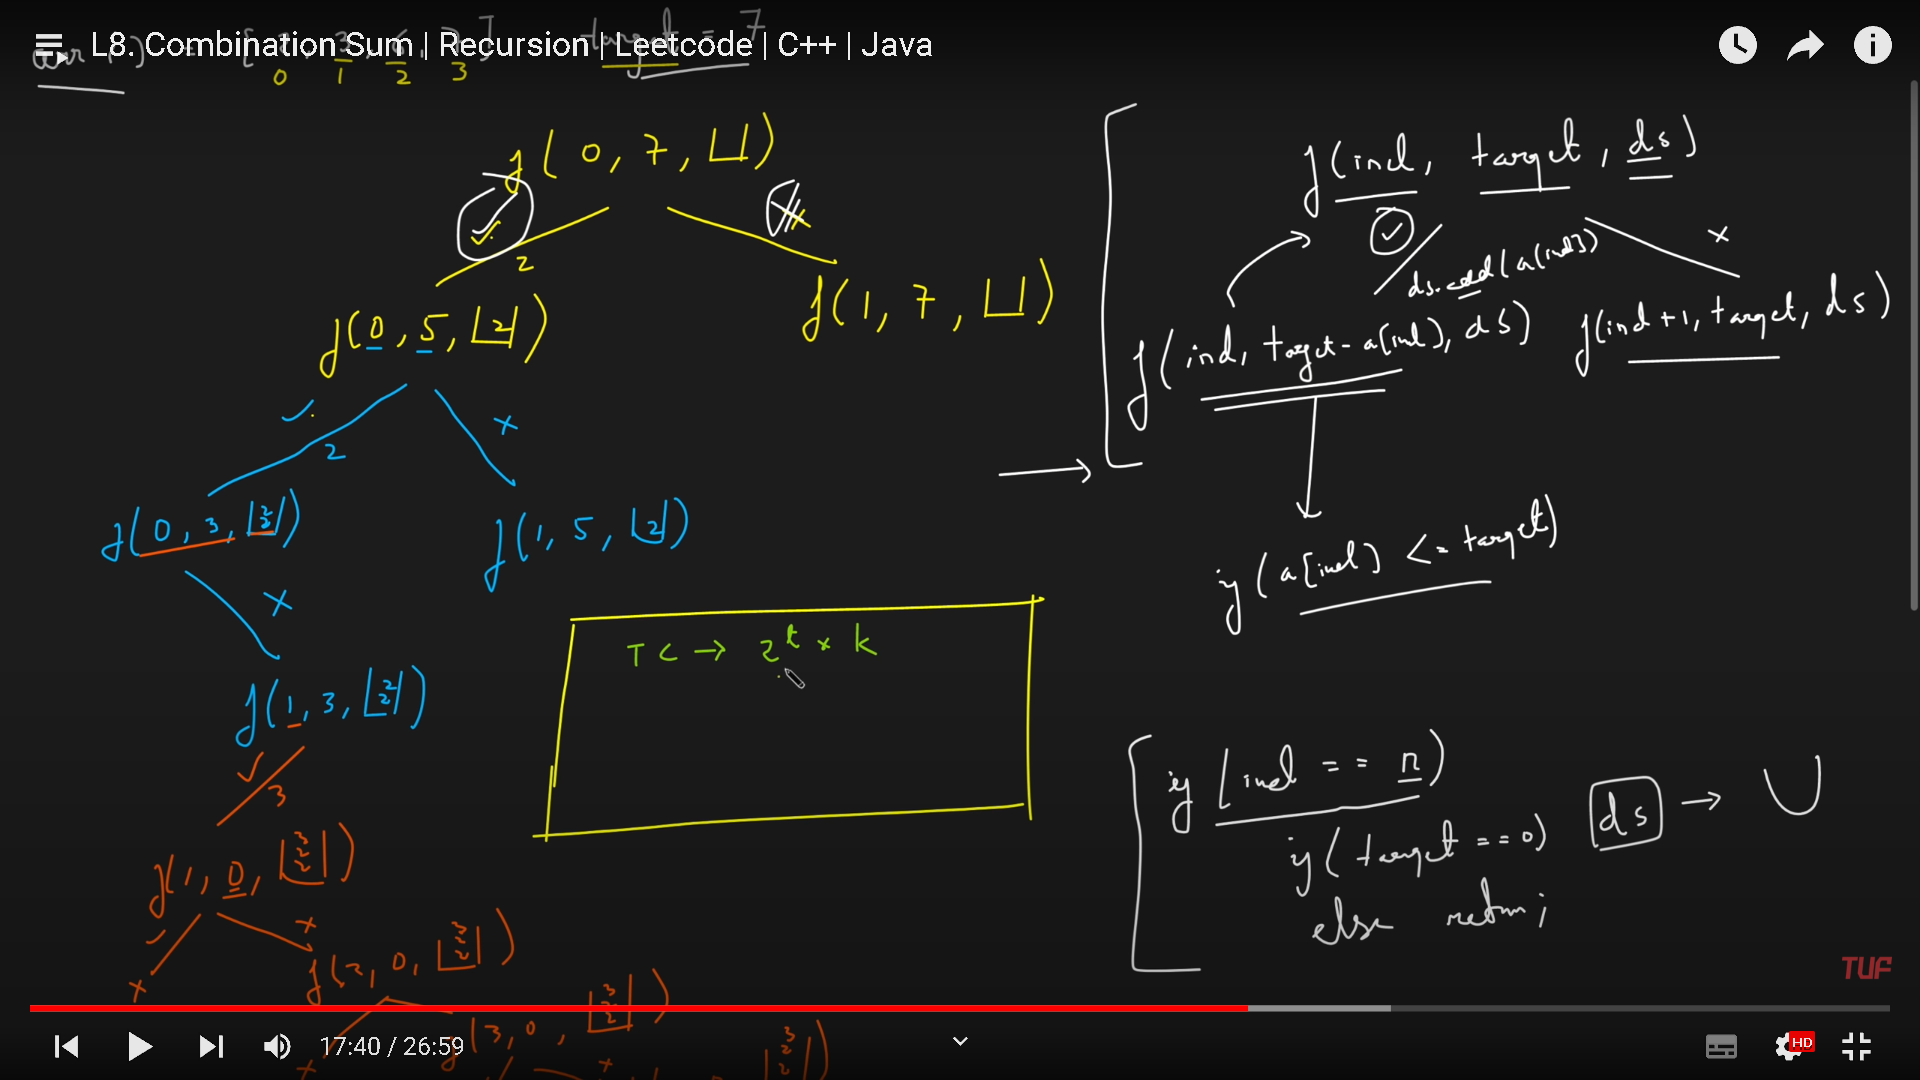 L8. Combination Sum | Recursion | Leetcode | C++ | Java
arr[] = [2, 3, 6, 7] target = 7
0 1 2 3
f(0, 7, ⊔)
2
f(0, 5, |2|)
f(1, 7, ⊔)
x
2
x
f(0, 3, |2 2|)
f(1, 5, |2|)
x
f(1, 3, |2 2|)
3
f(1, 0, |3 2 2|)
x
x
f(2, 0, |3 2 2|)
f(3, 0, |3 2 2|)
x
x
TC → 2^t × k
f(ind, target, ds)
x
ds.add(a[ind])
f(ind, target - a[ind], ds)
f(ind+1, target, ds)
if (a[ind] <= target)
if (ind == n)
if (target == 0) ds →
else return;
TUF
17:40 / 26:59
HD